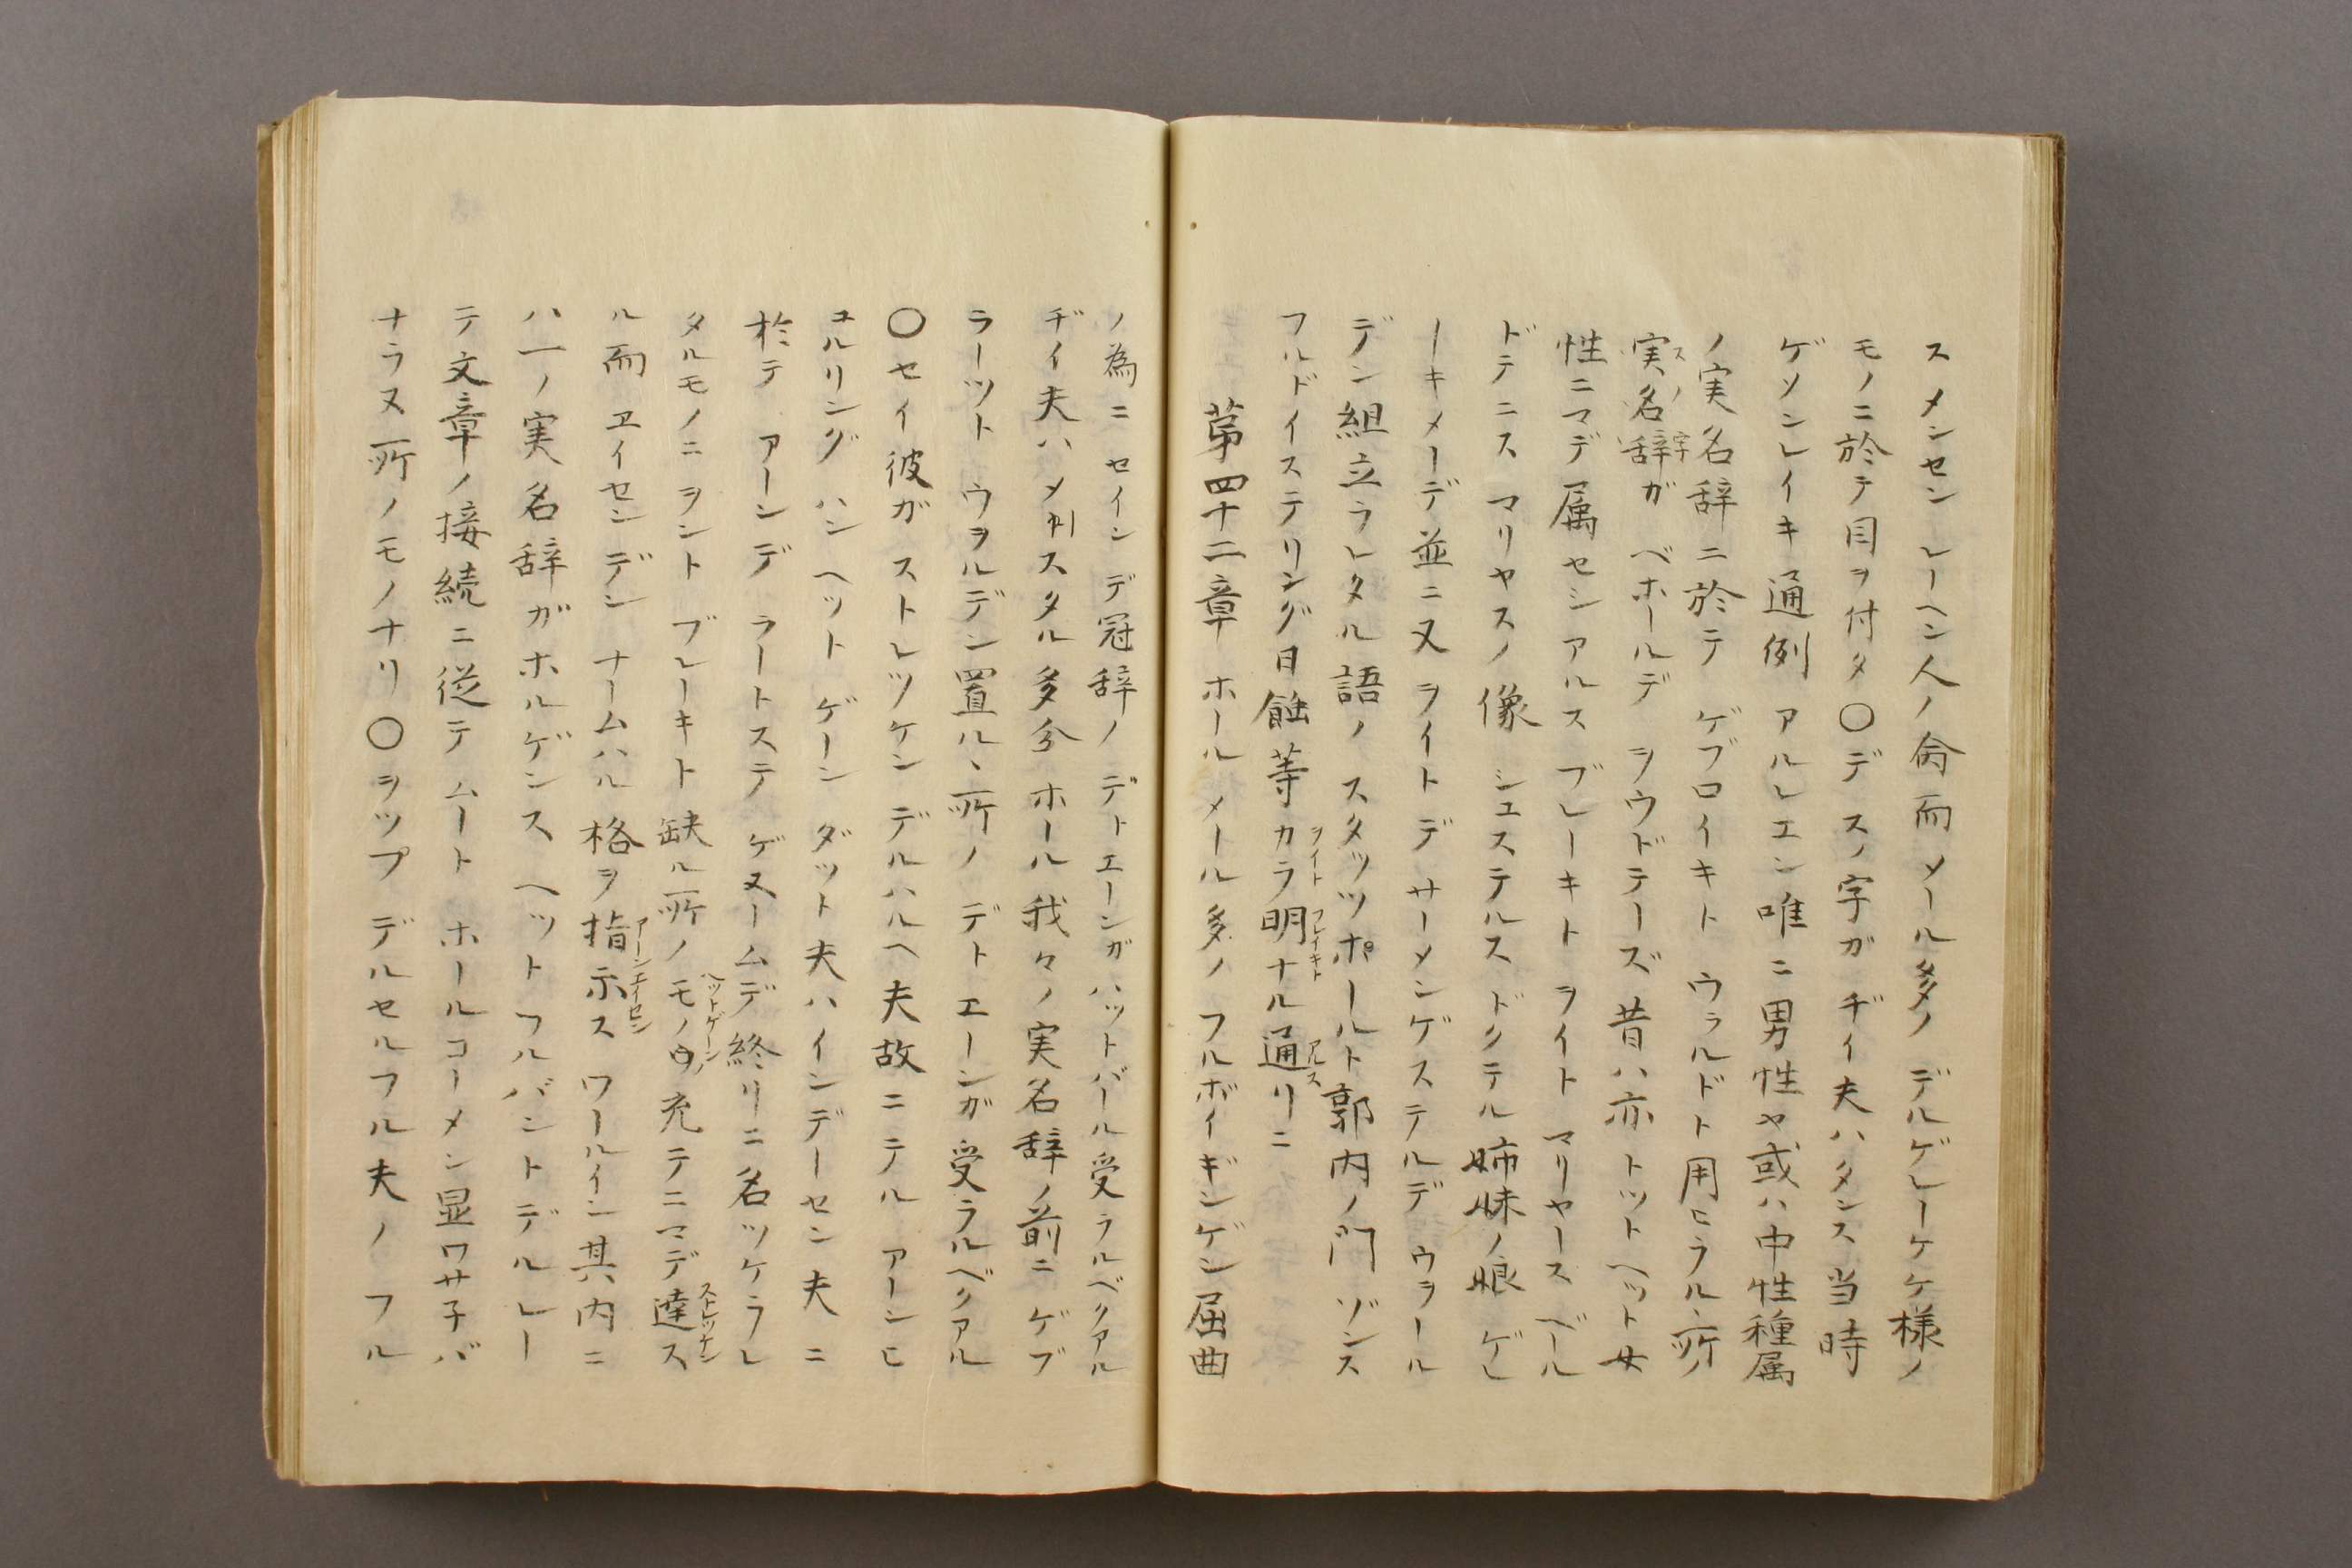 スメンセン レーヘン人ノ侖而メール多ノ デルゲレーケケ様ノ
モノニ於テ目ヲ付タ〇デスノ字ガ ヂイ夫ハタンス当時
ゲソンレイキ通例 アルレエン唯ニ男性ヤ或ハ中性種属
ノ実名辞ニ於テ ゲブロイキト ウラルドト用ヒラルヽ所ノ
実名辞ガ ベホールデ ヲウドテーズ 昔ハ亦トットヘット女
スノ字
性ニマデ属セシアルス ブレーキト ヲイト マリヤース ベール
ドテニス マリヤスノ像 シュステルス ドクテル姉妹ノ娘 ゲレ
ーキメーデ並ニ又 ヲイトデ サーメンゲステルデ ウヲール
デン組立ラレタル語ノ スタッツポールト郭内ノ門 ゾンス
フルドイステリング日蝕等カラ明ナル通リニ
ヲイト フレイキト アルス
第四十二章 ホール メール多ノ フルボイギンゲン屈曲
ノ為ニセイン デ冠辞ノ デトエーンガハットバール受ラルベクアル
ヂイ夫ハメ列スタル多分 ホール我々ノ実名辞ノ前ニ ゲプ
ラーツト ウヲルデン置ルヽ所ノ デトエーンガ受ラルベクアル
〇セイ彼ガ ストレツケン デルハルヘ夫故ニテル アーンヒ
ユルリング ハン ヘット ゲーン ダット夫ハインデーセン夫ニ
於テ アーンデ ラートステ ゲヌームデ終リニ名ツケラレ
タルモノニヲント ブレーキト缺ル所ノモノヲ充テニマデ達ス
ヘットゲーンノ ストレッケン
ル而 ヱイセンデン ナームハル格ヲ指示ス ワールイン其内ニ
アーンエイセン
ハ一ノ実名辞ガホルゲンス ヘットフルバントデルレー
テ文章ノ接続ニ従テ ムート ホールコーメン显ワサ子バ
ナラヌ所ノモノナリ〇ヲップ デルセルフル夫ノフル